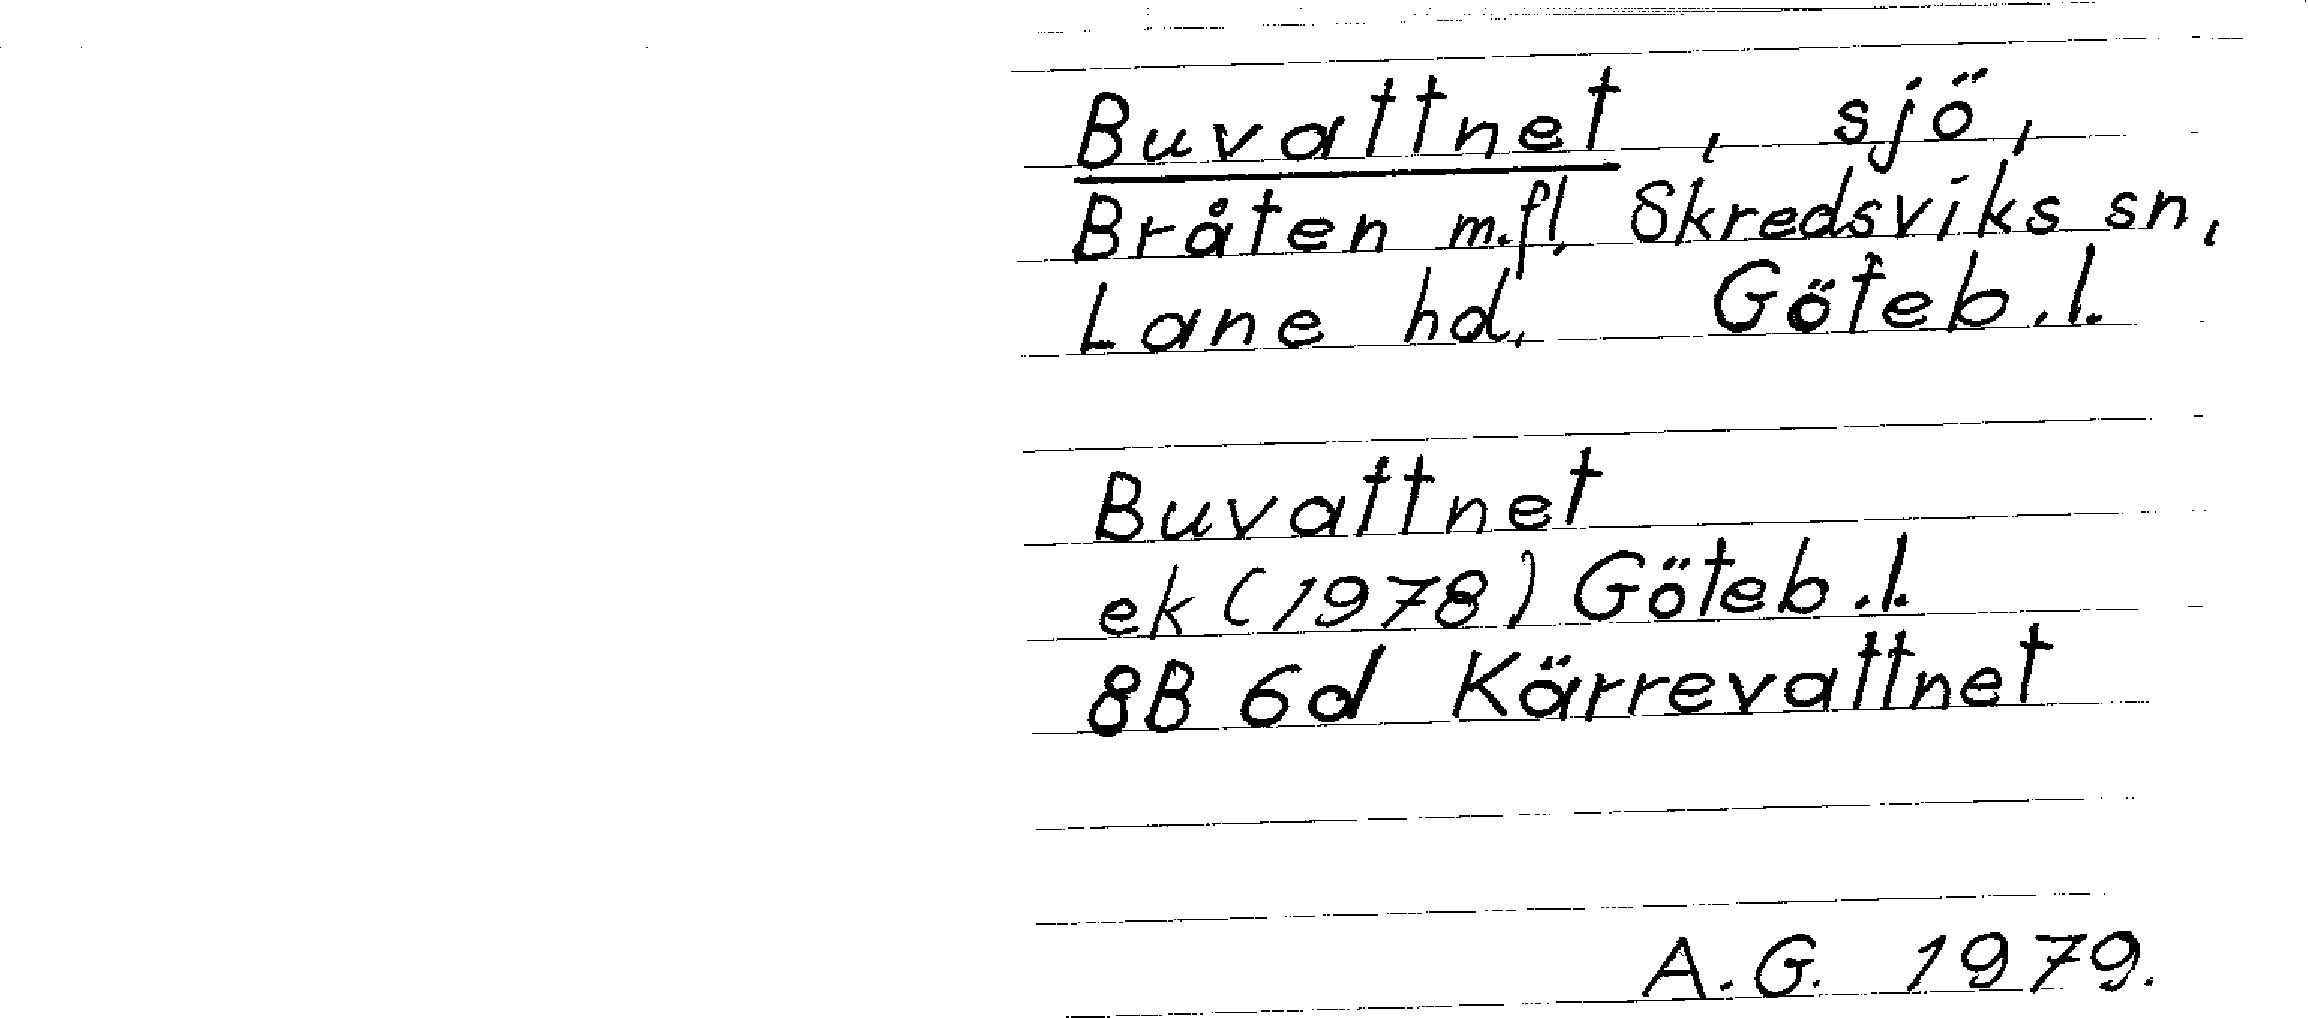 Buvattnet, sjö,
Bråten m.fl, Skredsviks sn,
Lane hd, Göteb.l.
Buvattnet
ek (1978) Göteb.l.
8B 6d Kärrevattnet
A.G. 1979.